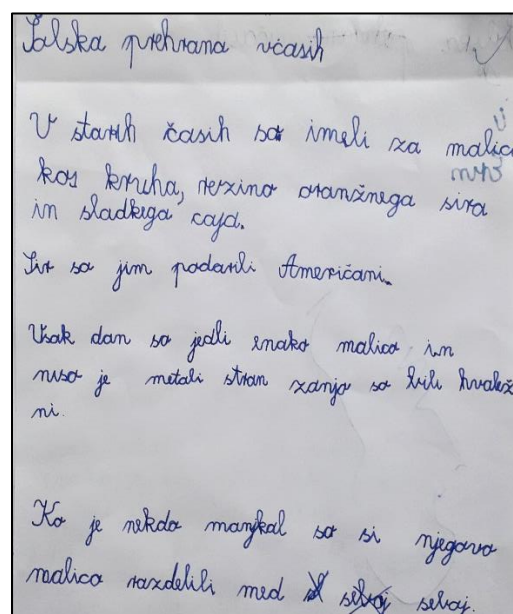 Šolska prehrana včasih
V starih časih so imeli za malico
kos kruha, rezino oranžnega sira
in sladkega čaja.
Sir so jim podarili Američani.
Vsak dan so jedli enako malico in
niso je metali stran zanjo so bili hvalež
ni.
Ko je nekdo manjkal so si njegovo
malico razdelili med seboj.